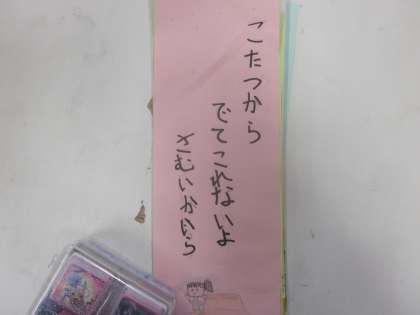 こたつから
でてこれないよ
さむいから